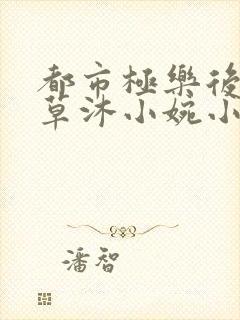 都市極樂後
草沐小婉小
潘智